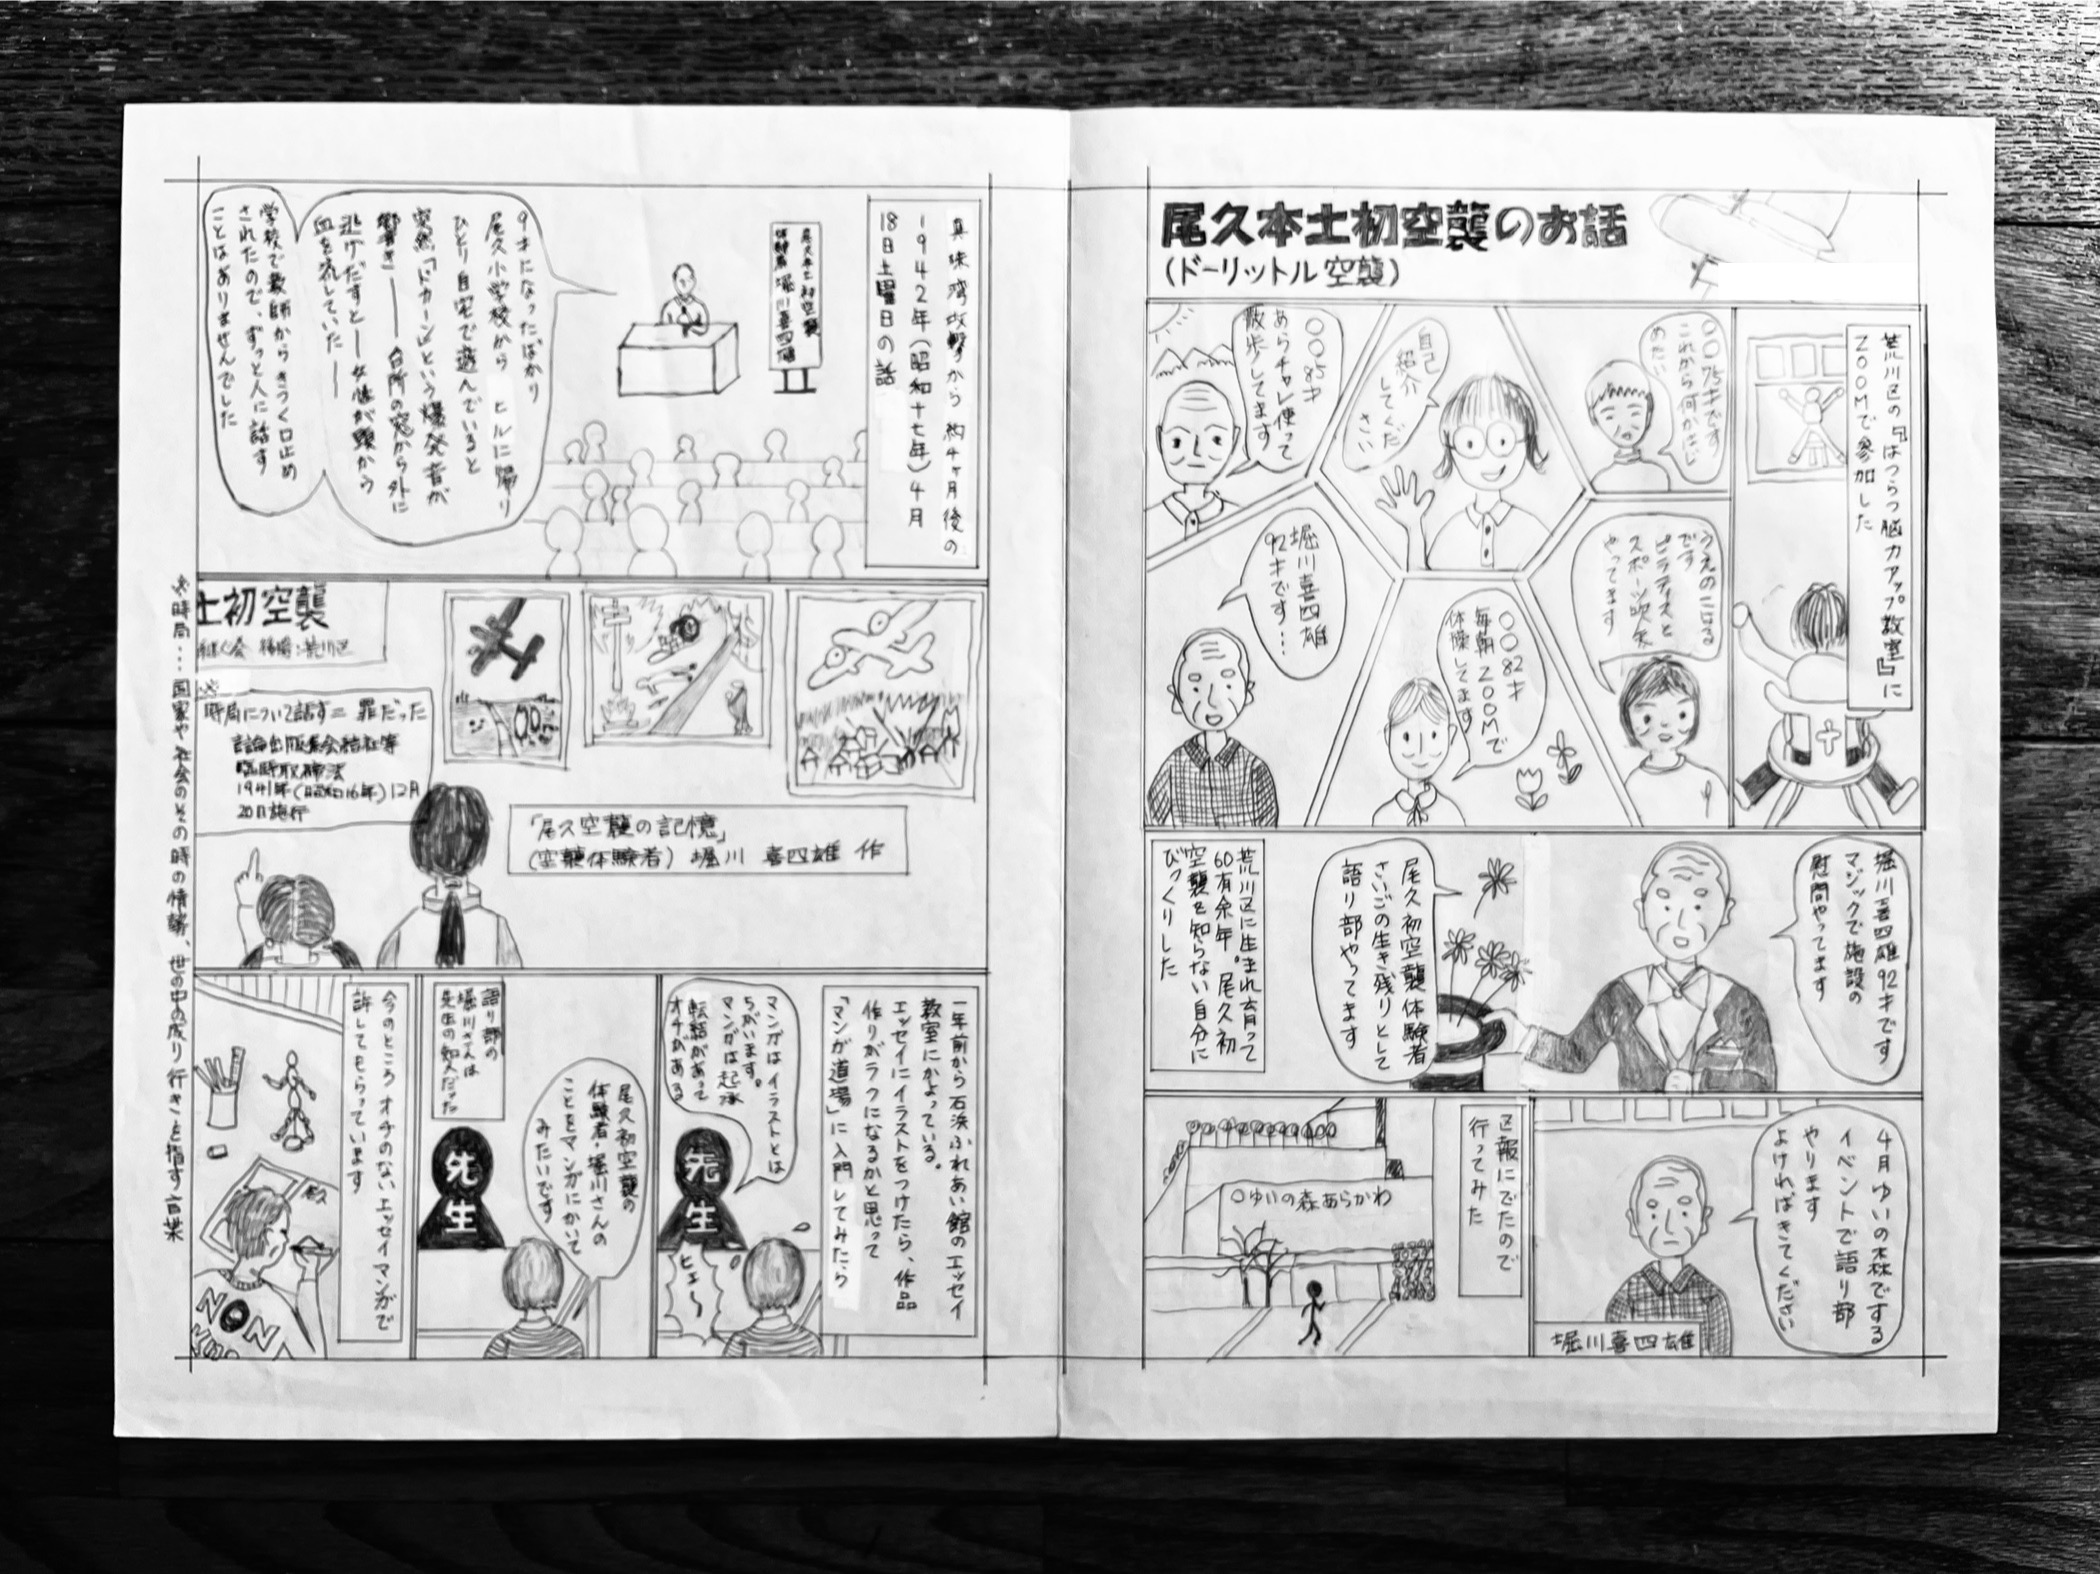 尾久本土初空襲のお話
(ドーリットル空襲)
荒川区の『はつらつ脳力アップ教室』に
ZOOMで参加した
〇〇75才です
これから何かはじ
めたい
自己
紹介
してくだ
さい
〇〇85才
あらチャレ使って
散歩してます
です
ピラティスと
スポーツ吹矢
やってます
〇〇82才
毎朝ZOOMで
体操してます
堀川喜四雄
92才です…
堀川喜四雄92才です
マジックで施設の
慰問やってます
尾久初空襲体験者
さいごの生き残りとして
語り部やってます
荒川区に生まれ育って
60有余年。尾久初
空襲を知らない自分に
びっくりした
4月ゆいの森でする
イベントで語り部
やります
よければきてください
堀川喜四雄
区報にでたので
行ってみた
ゆいの森あらかわ
真珠湾攻撃から約4ヶ月後の
1942年(昭和十七年)4月
18日土曜日の話
尾久本土初空襲
体験者 堀川喜四雄
9才になったばかり
尾久小学校から ヒルに帰り
ひとり自宅で遊んでいると
突然「ドカーン」という爆発音が
響き――台所の窓から外に
逃げだすと――女性が頭から
血を流していた――
学校で教師からきつく口止め
されたので、ずっと人に話す
ことはありませんでした
土初空襲
継ぐ会  協賛:荒川区
※
時局について話す=罪だった
言論出版集会結社等
臨時取締法
1941年(昭和16年)12月
20日施行
「尾久空襲の記憶」
(空襲体験者) 堀川 喜四雄 作
一年前から石浜ふれあい館のエッセイ
教室にかよっている。
エッセイにイラストをつけたら、作品
作りがラクになるかと思って
「マンガ道場」に入門してみたら
マンガはイラストとは
ちがいます。
マンガは起承
転結があって
オチがある
先生
ヒェ〜
語り部の
堀川さんは
先生の知人だった
尾久初空襲の
体験者・堀川さんの
ことをマンガにかいて
みたいです
先生
今のところオチのないエッセイマンガで
許してもらっています
NON
※時局…国家や社会のその時の情勢、世の中の成り行きを指す言葉